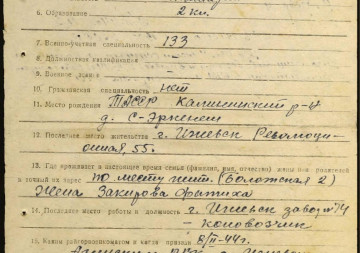 6. Образование 2 кл.
7. Военно-учетная специальность 133
8. Должностная квалификация —
9. Военное звание —
10. Гражданская специальность нет
11. Место рождения ТАССР р-н
д. С-
12. Последнее место жительства г. Ижевск Революци-
онная, 55.
13. Где проживает в настоящее время семья (фамилия, имя, отчество) жены или родителей
и точный их адрес по месту жит. (Воложская 2)
Жена Закирова
14. Последнее место работы и должность г. Ижевск завод №74
коновозчик
15. Каким райвоенкоматом и когда призван 8/II-44г.